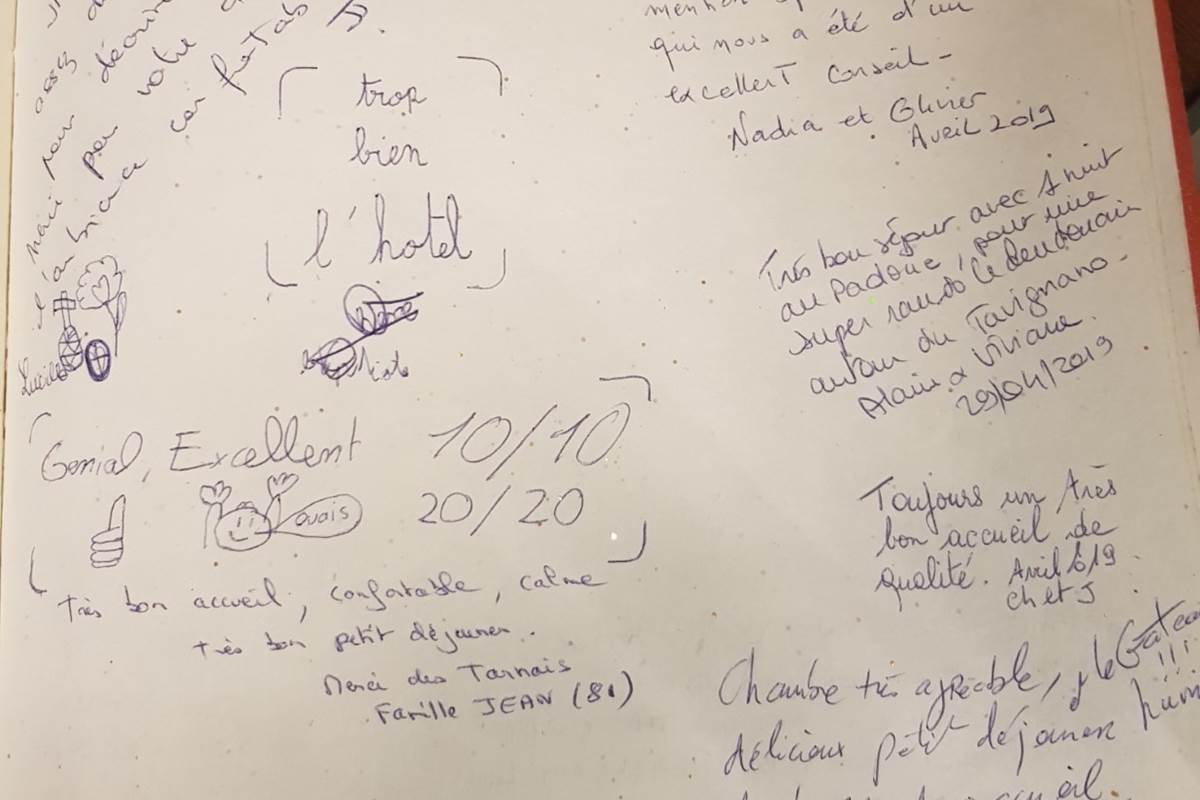 merci pour
par votre
l'ambiance confortab
Lucile
trop
bien
l'hotel
Genial, Excellent 10/10
ouais 20/20
Très bon accueil, confortable, calme
très bon petit déjeuner.
Merci des Tarnais
Famille JEAN (81)
qui nous a été d'un
excellent conseil -
Nadia et Olivier
Avril 2019
Très bon séjour avec 1 nuit
au Padoue, pour une
super rando le lendemain
autour du Tavignano.
Alain & Viviane.
29/04/2019
Toujours un très
bon accueil de
qualité. Avril 619
Ch et J
Chambre très agréable, le Gateau
délicieux petit déjeuner !!!